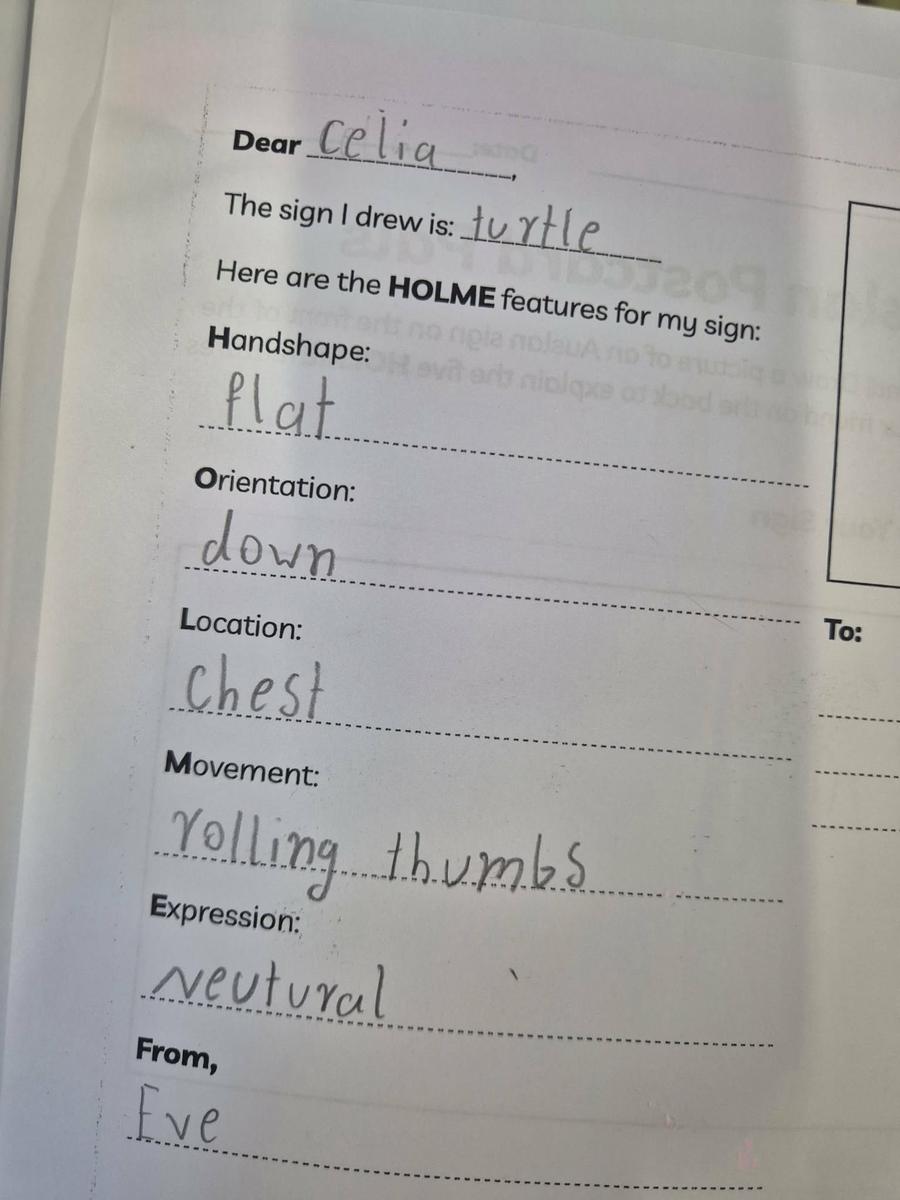 Dear Celia,
The sign I drew is: turtle
Here are the HOLME features for my sign:
Handshape:
flat
Orientation:
down
Location:
Chest
Movement:
rolling thumbs
Expression:
Neutural
From,
Eve
To: